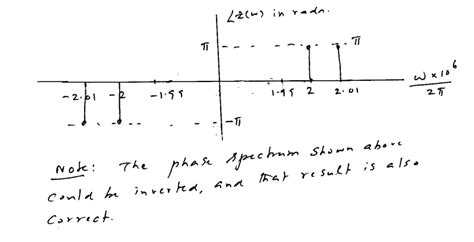 ∠Z(ω) in radn.
π π
-2.01 -2 -1.99 1.99 2 2.01 ω×10⁶/2π
-π
Note: The phase spectrum shown above
could be inverted, and that result is also
correct.